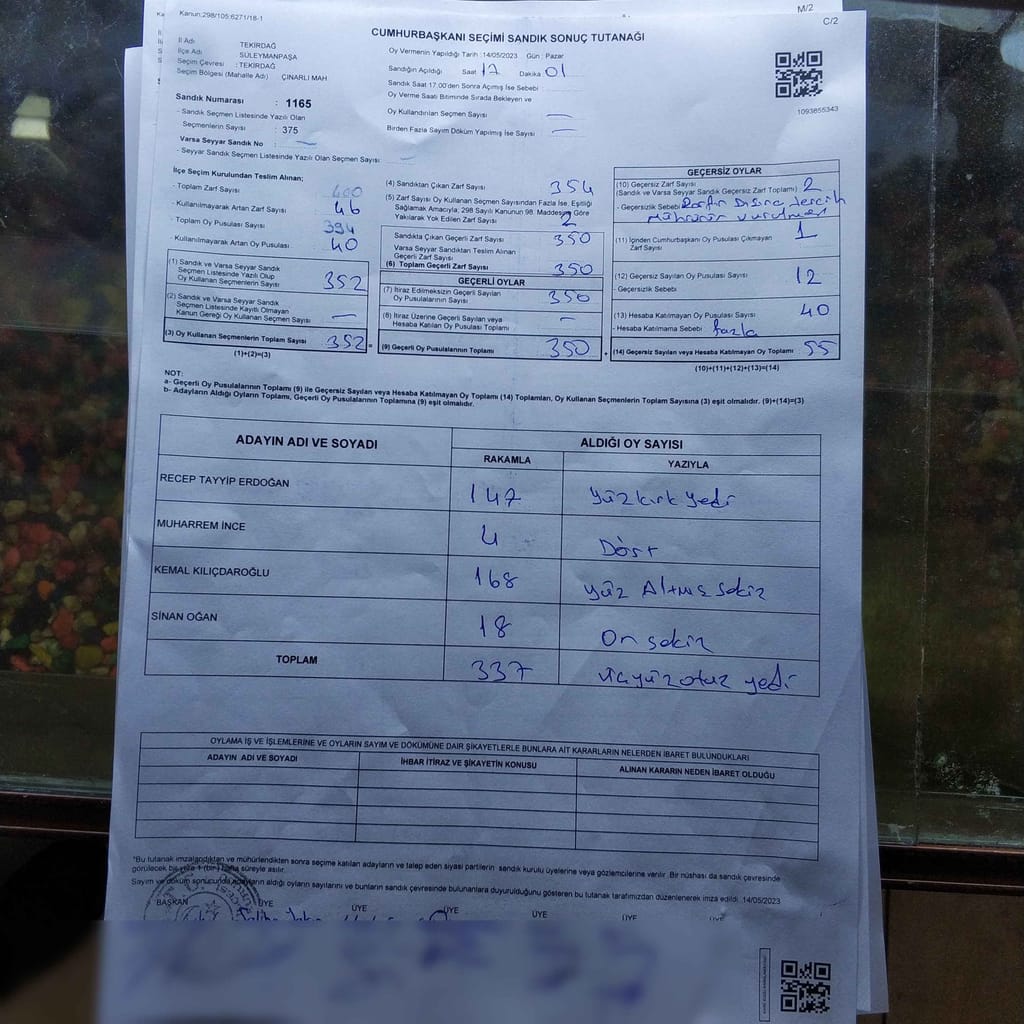 Kanun:298/105;6271/18-1
M/2
C/2
CUMHURBAŞKANI SEÇİMİ SANDIK SONUÇ TUTANAĞI
İl Adı : TEKİRDAĞ
İlçe Adı : SÜLEYMANPAŞA
Seçim Çevresi : TEKİRDAĞ
Seçim Bölgesi (Mahalle Adı) : ÇINARLI MAH
Oy Vermenin Yapıldığı Tarih :14/05/2023 Gün : Pazar
Sandığın Açıldığı Saat 17 Dakika 01
Sandık Saat 17.00'den Sonra Açılmış İse Sebebi
Oy Verme Saati Bitiminde Sırada Bekleyen ve
Oy Kullandırılan Seçmen Sayısı —
Birden Fazla Sayım Döküm Yapılmış İse Sayısı —
1093855343
Sandık Numarası : 1165
- Sandık Seçmen Listesinde Yazılı Olan
Seçmenlerin Sayısı : 375
Varsa Seyyar Sandık No —
- Seyyar Sandık Seçmen Listesinde Yazılı Olan Seçmen Sayısı : —
İlçe Seçim Kurulundan Teslim Alınan;
- Toplam Zarf Sayısı 400
- Kullanılmayarak Artan Zarf Sayısı 46
- Toplam Oy Pusulası Sayısı 394
- Kullanılmayarak Artan Oy Pusulası 40
(1) Sandık ve Varsa Seyyar Sandık
Seçmen Listesinde Yazılı Olup
Oy Kullanan Seçmenlerin Sayısı 352
(2) Sandık ve Varsa Seyyar Sandık
Seçmen Listesinde Kayıtlı Olmayan
Kanun Gereği Oy Kullanan Seçmen Sayısı —
(3) Oy Kullanan Seçmenlerin Toplam Sayısı 352
(1)+(2)=(3)
(4) Sandıktan Çıkan Zarf Sayısı 354
(5) Zarf Sayısı Oy Kullanan Seçmen Sayısından Fazla İse, Eşitliği
Sağlamak Amacıyla; 298 Sayılı Kanunun 98. Maddesine Göre
Yakılarak Yok Edilen Zarf Sayısı 2
Sandıkta Çıkan Geçerli Zarf Sayısı 350
Varsa Seyyar Sandıktan Teslim Alınan
Geçerli Zarf Sayısı
(6) Toplam Geçerli Zarf Sayısı 350
GEÇERLİ OYLAR
(7) İtiraz Edilmeksizin Geçerli Sayılan
Oy Pusulalarının Sayısı 350
(8) İtiraz Üzerine Geçerli Sayılan veya
Hesaba Katılan Oy Pusulası Toplamı —
(9) Geçerli Oy Pusulalarının Toplamı 350
GEÇERSİZ OYLAR
(10) Geçersiz Zarf Sayısı
(Sandık ve Varsa Seyyar Sandık Geçersiz Zarf Toplamı) 2
- Geçersizlik Sebebi Zarfın Dışına tercih
Mührünün vurulması
(11) İçinden Cumhurbaşkanı Oy Pusulası Çıkmayan
Zarf Sayısı 1
(12) Geçersiz Sayılan Oy Pusulası Sayısı 12
- Geçersizlik Sebebi
(13) Hesaba Katılmayan Oy Pusulası Sayısı 40
- Hesaba Katılmama Sebebi fazla
(14) Geçersiz Sayılan veya Hesaba Katılmayan Oy Toplamı 55
(10)+(11)+(12)+(13)=(14)
NOT:
a- Geçerli Oy Pusulalarının Toplamı (9) ile Geçersiz Sayılan veya Hesaba Katılmayan Oy Toplamı (14) Toplamları, Oy Kullanan Seçmenlerin Toplam Sayısına (3) eşit olmalıdır. (9)+(14)=(3)
b- Adayların Aldığı Oyların Toplamı, Geçerli Oy Pusulalarının Toplamına (9) eşit olmalıdır.
ADAYIN ADI VE SOYADI ALDIĞI OY SAYISI
RAKAMLA YAZIYLA
RECEP TAYYİP ERDOĞAN 147 yüzkırk yedi
MUHARREM İNCE 4 Dört
KEMAL KILIÇDAROĞLU 168 yüz Altmış sekiz
SİNAN OĞAN 18 On sekiz
TOPLAM 337 üçyüzotuz yedi
OYLAMA İŞ VE İŞLEMLERİNE VE OYLARIN SAYIM VE DÖKÜMÜNE DAİR ŞİKAYETLERLE BUNLARA AİT KARARLARIN NELERDEN İBARET BULUNDUKLARI
ADAYIN ADI VE SOYADI İHBAR İTİRAZ VE ŞİKAYETİN KONUSU ALINAN KARARIN NEDEN İBARET OLDUĞU
*Bu tutanak imzalandıktan ve mühürlendikten sonra seçime katılan adayların ve talep eden siyasi partilerin sandık kurulu üyelerine veya gözlemcilerine verilir. Bir nüshası da sandık çevresinde
görülecek bir yere 1 (bir) hafta süreyle asılır.
Sayım ve döküm sonucunda adayların aldığı oyların sayılarını ve bunların sandık çevresinde bulunanlara duyurulduğunu gösteren bu tutanak tarafımızdan düzenlenerek imza edildi. 14/05/2023
BAŞKAN ÜYE ÜYE ÜYE ÜYE ÜYE ÜYE